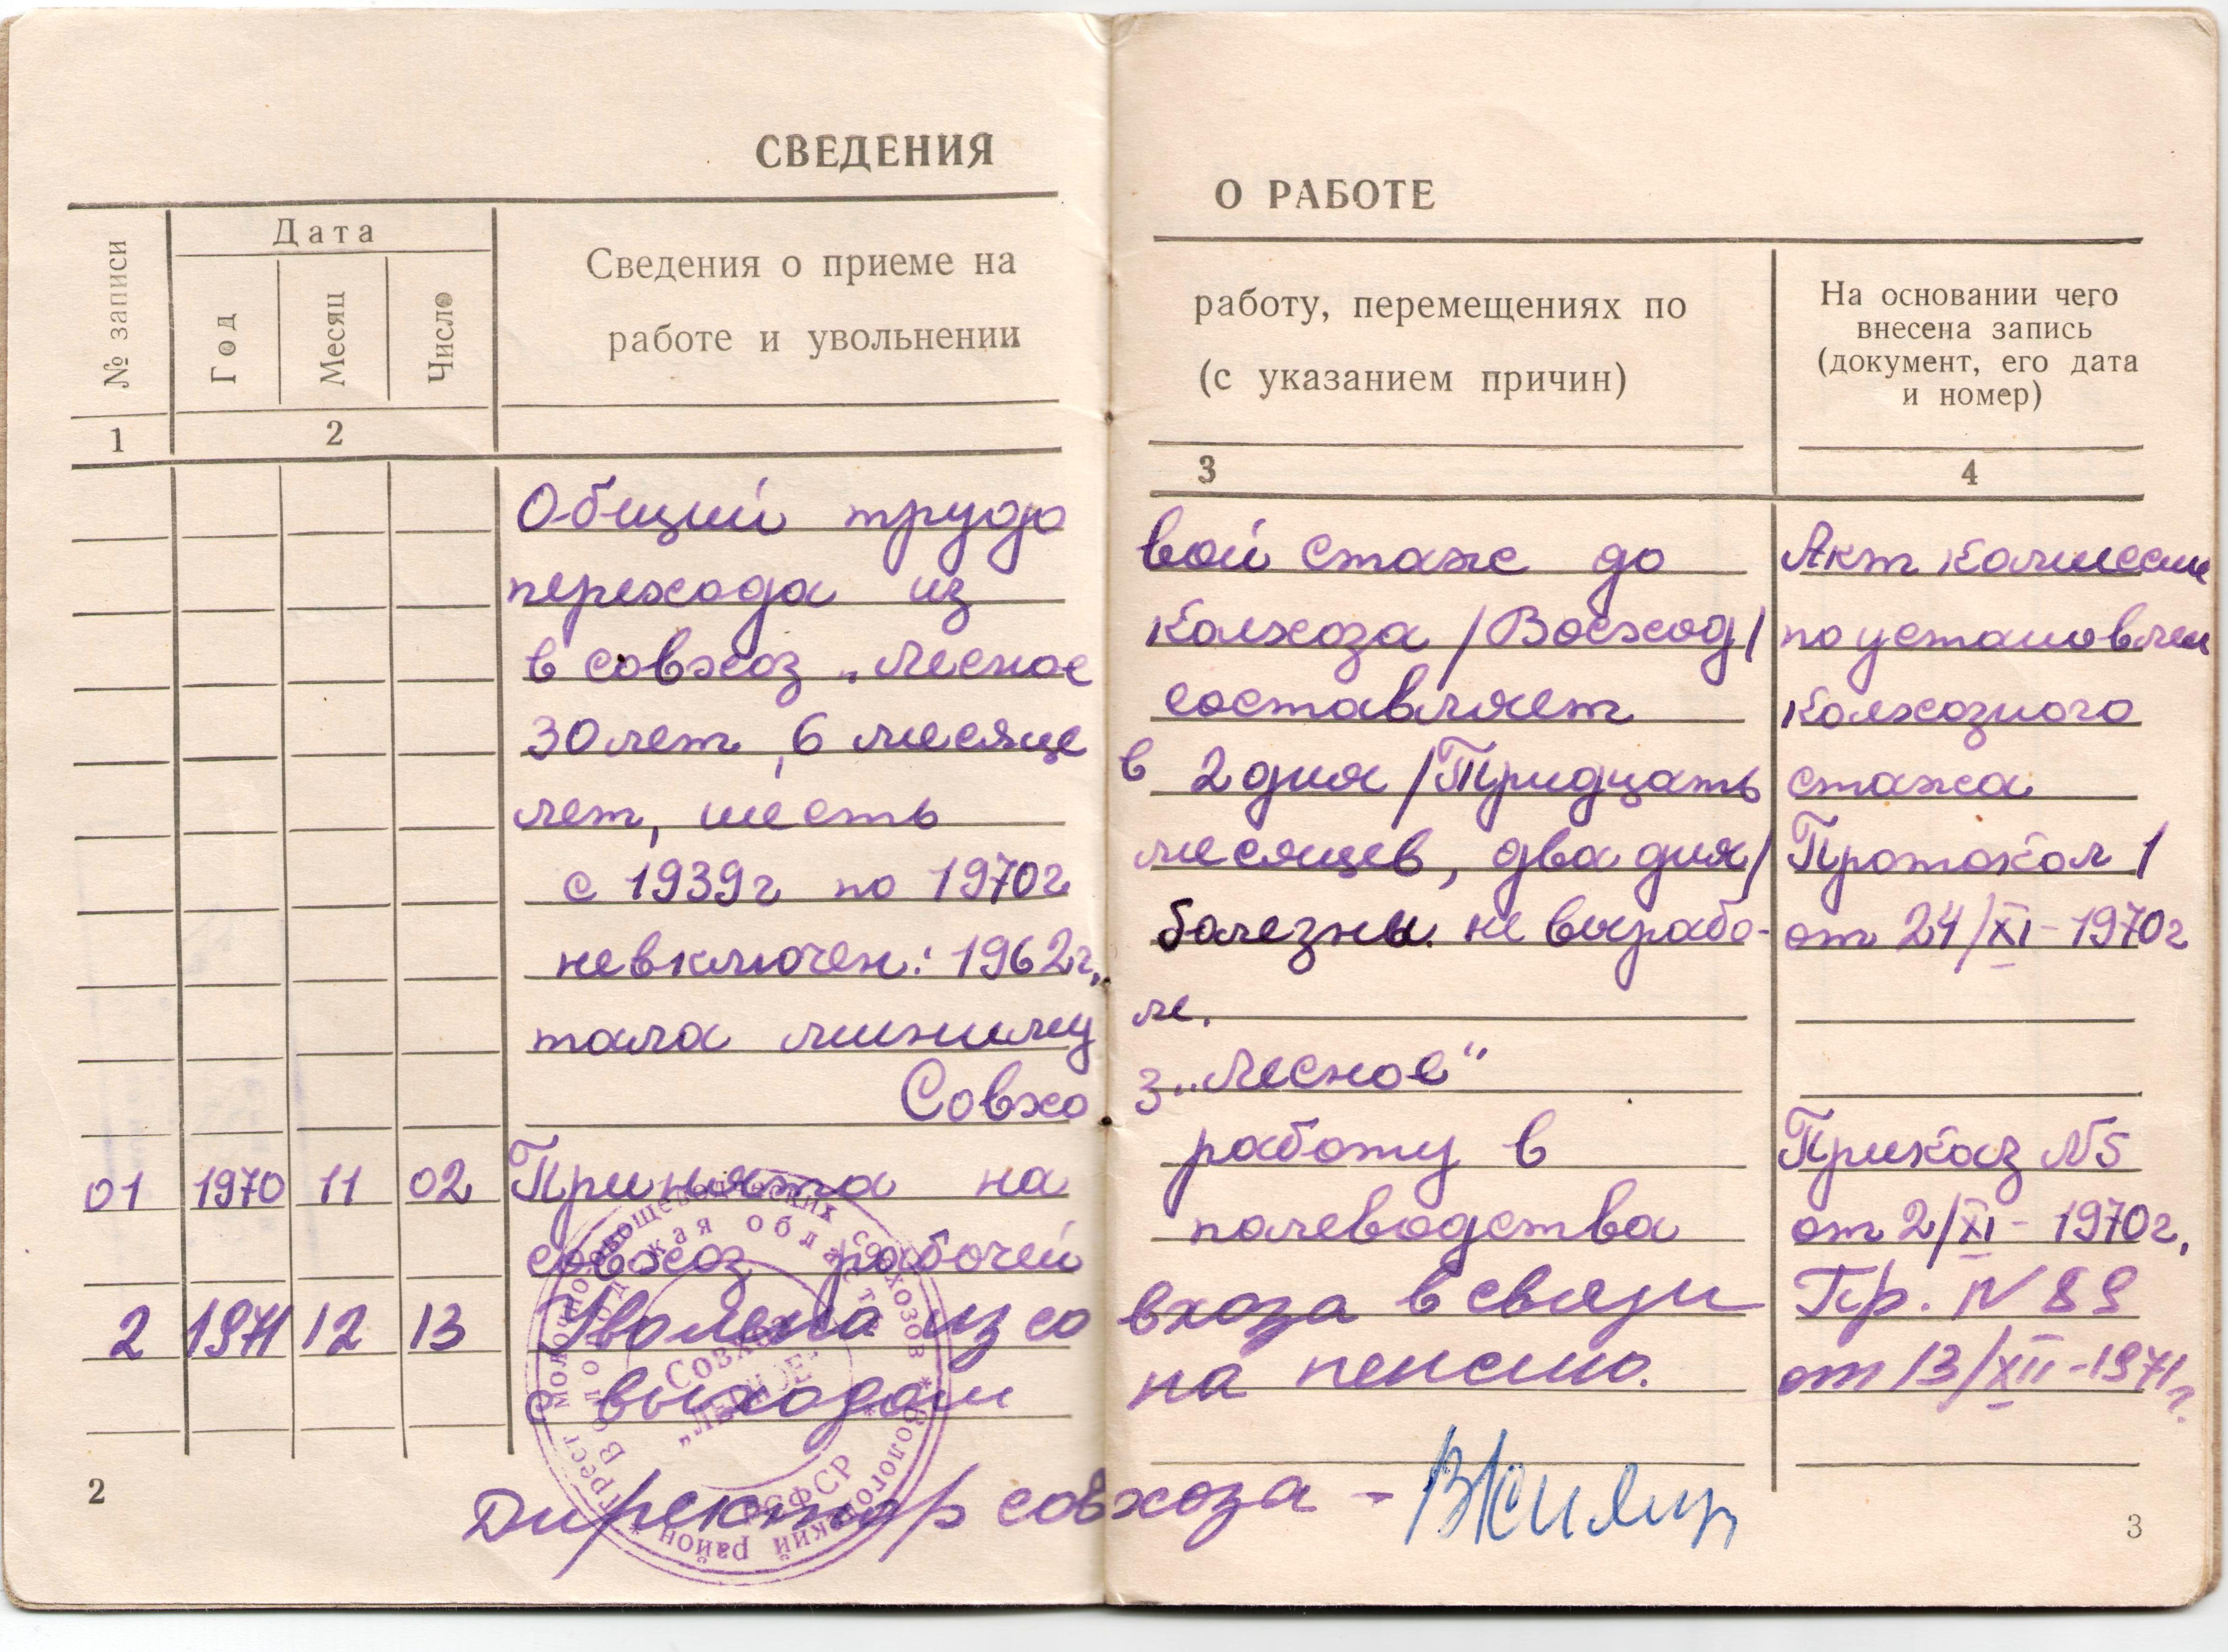 СВЕДЕНИЯ
О РАБОТЕ
№ записи
Дата
Год
Месяц
Число
Сведения о приеме на
работу, перемещениях по
работе и увольнении
(с указанием причин)
На основании чего
внесена запись
(документ, его дата
и номер)
1
2
3
4
Общий трудо вой стаж до
перехода из колхоза /Восход/
в совхоз „Лесное составляет
30 лет, 6 месяце в 2 дня /Тридцать
лет, шесть месяцев, два дня/
с 1939г по 1970г болезни. не вырабо-
не включен: 1962г.,
тала миниму м.
Совхо з „Лесное"
Акт комиссии
по установлен
колхозного
стажа
Протокол 1
от 24/XI-1970г
01 1970 11 02 Принята на работу в Приказ N5
совхоз рабочей полеводства от 2/XI-1970г.
2 1971 12 13 Уволена из со вхоза в связи Пр. N 89
с выходом на пенсию. от 13/XII-1971г.
Директор совхоза -
Трест молочно-овощеводческих совхозов
Вологодская область
Совхоз
„ЛЕСНОЕ"
РСФСР
Вологодский район
2
3